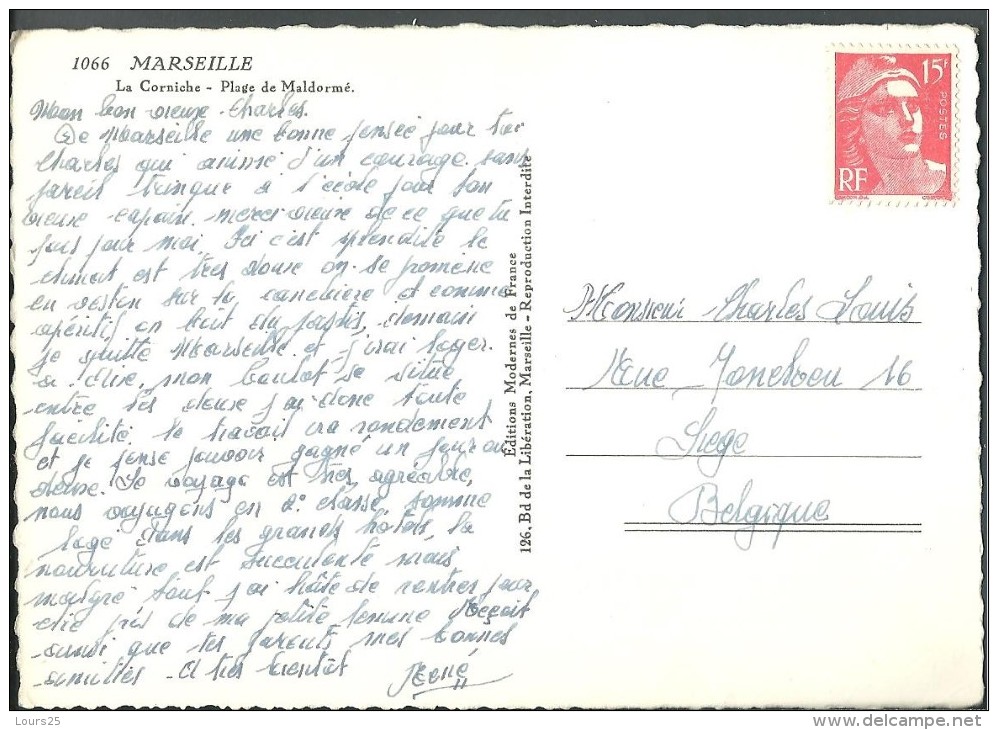 1066 MARSEILLE
La Corniche - Plage de Maldormé.
15F
POSTES
RF
Mon bon vieux Charles.
De Marseille une bonne pensée pour toi
Charles qui animé d'un courage sans
pareil trinque à l'école pour son
vieux copain. merci vieux de ce que tu
fais pour moi. Ici c'est splendide le
climat est très doux on se promène
en veston sur la canebière et comme
apéritif on boit du pastis, demain
je quitte Marseille et j'irai loger
à mon boulot se situe
entre les deux j'ai donc toute
facilité. le travail va rondement
et je pense pouvoir gagné un jour ou
deux. Le voyage est très agréable,
nous voyageons en 2e classe, somme
logé dans les grands hôtels, la
nourriture est succulente mais
malgré tout j'ai hâte de rentrer pour
être près de ma petite femme Reçoit
ainsi que tes parents mes bonnes
amitiés - A très bientôt
René
Éditions Modernes de France
126, Bd de la Libération, Marseille - Reproduction Interdite
Monsieur Charles Louis
Rue 16
Liege
Belgique
Lours25
delcampe.net